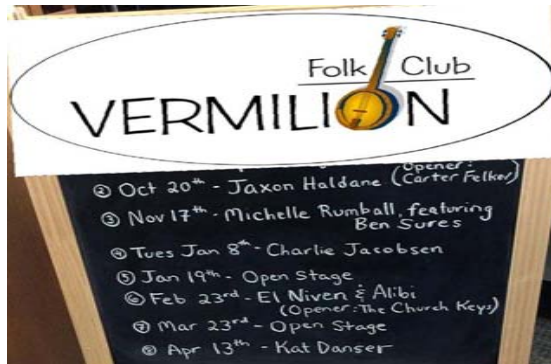 Folk Club
VERMILION
(Opener:
② Oct 20th - Jaxon Haldane (Carter Felker)
③ Nov 17th - Michelle Rumball, featuring
Ben Sures
④ Tues Jan 8th - Charlie Jacobsen
⑤ Jan 19th - Open Stage
⑥ Feb 23rd - El Niven & Alibi
(Opener: The Church Keys)
⑦ Mar 23rd - Open Stage
⑧ Apr 13th - Kat Danser